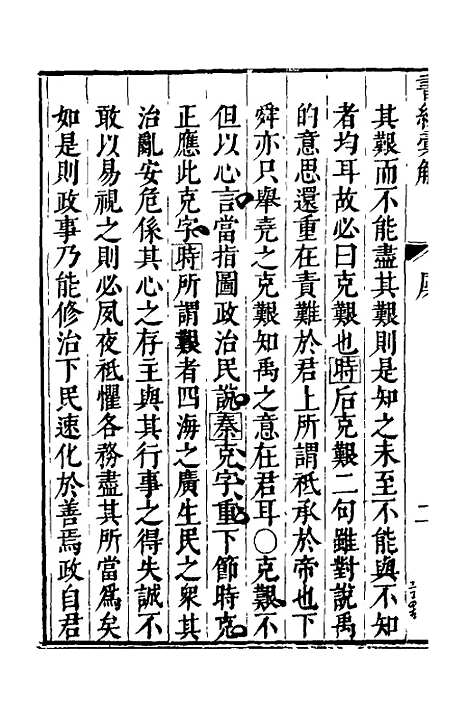 書經彙解
二
其艱而不能盡其艱則是知之未至不能與不知
者均耳故必曰克艱也時后克艱二句雖對說禹
的意思還重在責難於君上所謂祗承於帝也下
舜亦只舉堯之克艱知禹之意在君耳○克艱不
但以心言當指圖政治民說秦克字重下節時克
正應此克字時所謂艱者四海之廣生民之衆其
治亂安危係其心之存主與其行事之得失誠不
敢以易視之則必夙夜祗懼各務盡其所當爲矣
如是則政事乃能修治下民速化於善焉政自君